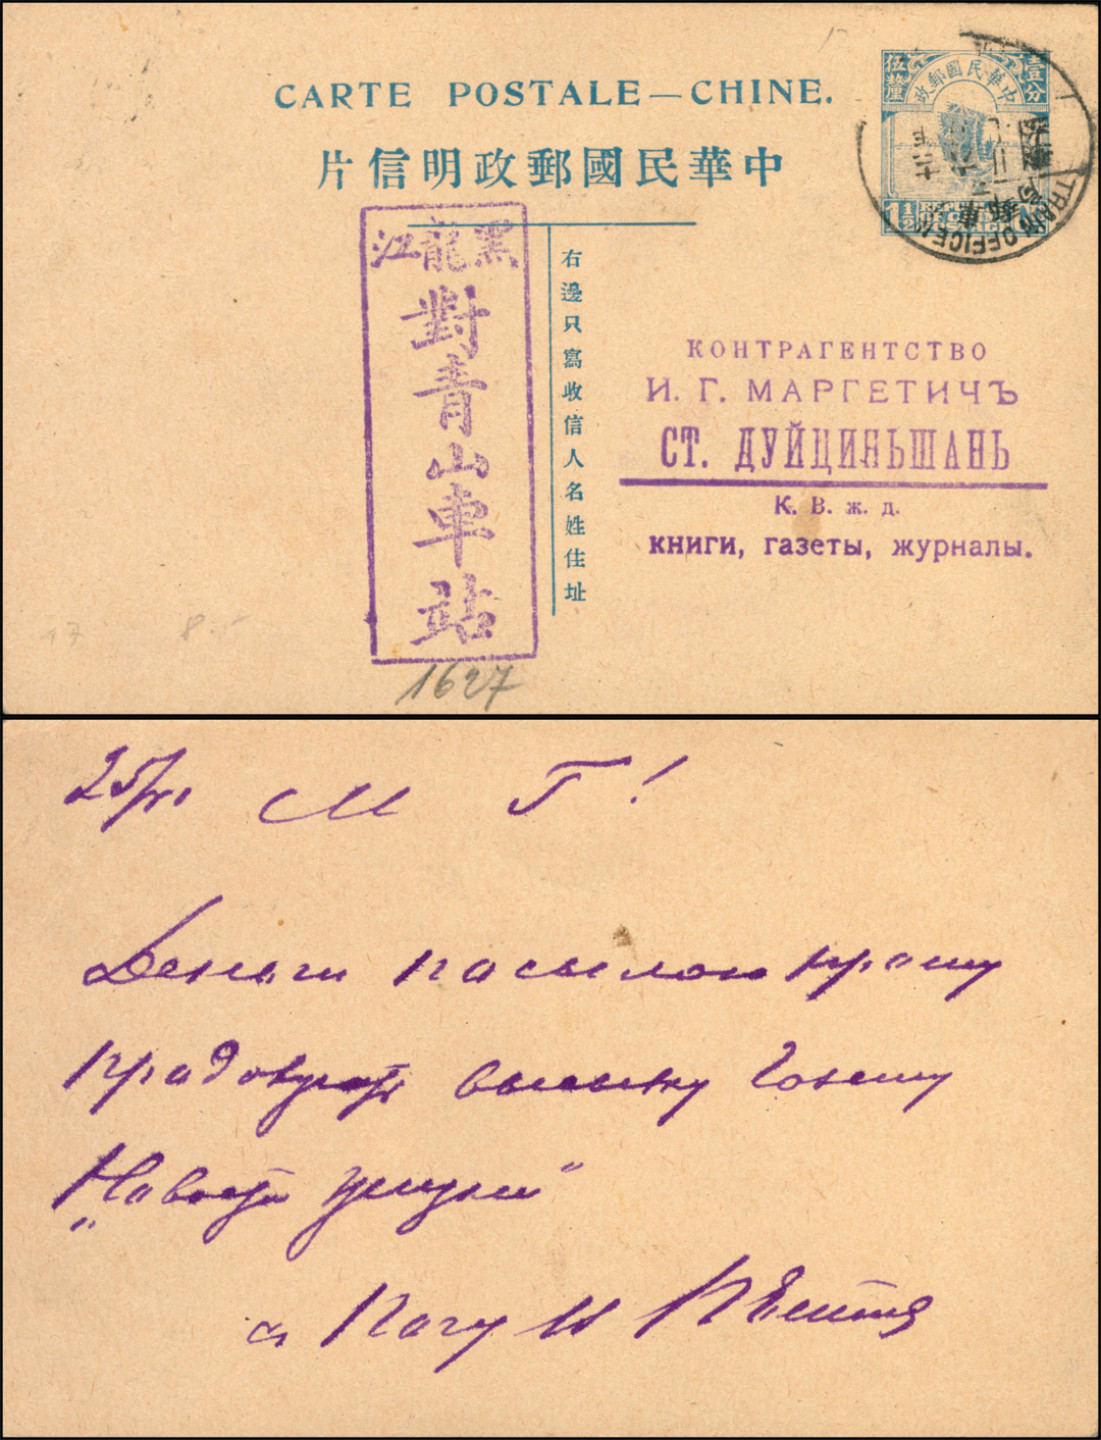 CARTE POSTALE—CHINE.
中華民國郵政明信片
中華民國郵政
壹分
伍釐
1½
TRAIN OFFICE
黑龍江
對青山車站
右邊只寫收信人名姓住址
КОНТРАГЕНТСТВО
И. Г. МАРГЕТИЧЪ
СТ. ДУЙЦИНЬШАНЬ
К. В. ж. д.
книги, газеты, журналы.
17 8.-
1627
25/VI М Г!
Деньги посылаю прошу
высылку газету
„Новости Жизни“